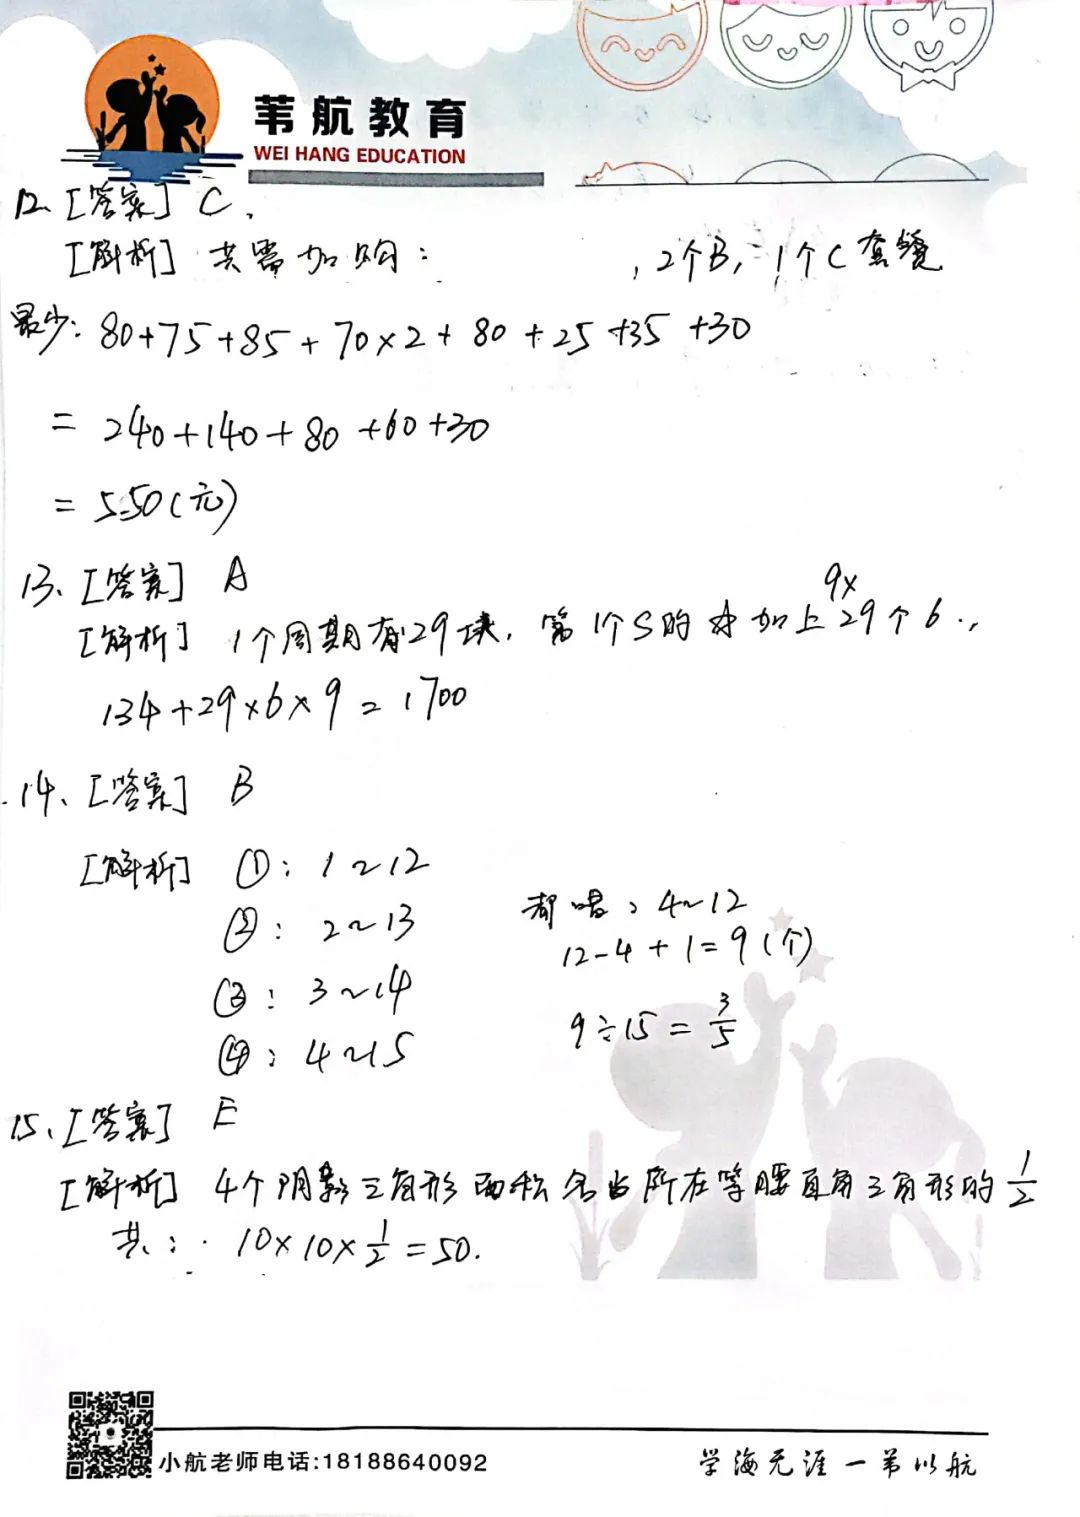 苇航教育
WEI HANG EDUCATION
12、[答案] C.
[解析] 共需加购: ,2个B,1个C套餐
最少: 80+75+85+70×2+80+25+35+30
= 240+140+80+60+30
= 550(元)
13、[答案] A
9×
[解析] 1个周期有29块,第1个S的 加上29个6.,
134+29×6×9=1700
14、[答案] B
[解析] ①: 1~12
②: 2~13
③: 3~14
④: 4~15
都唱: 4~12
12-4+1=9(个)
9÷15=3/5
15、[答案] E
[解析] 4个阴影三角形面积各占所在等腰直角三角形的1/2
共: 10×10×1/2=50.
小航老师电话:18188640092
学海无涯一苇以航